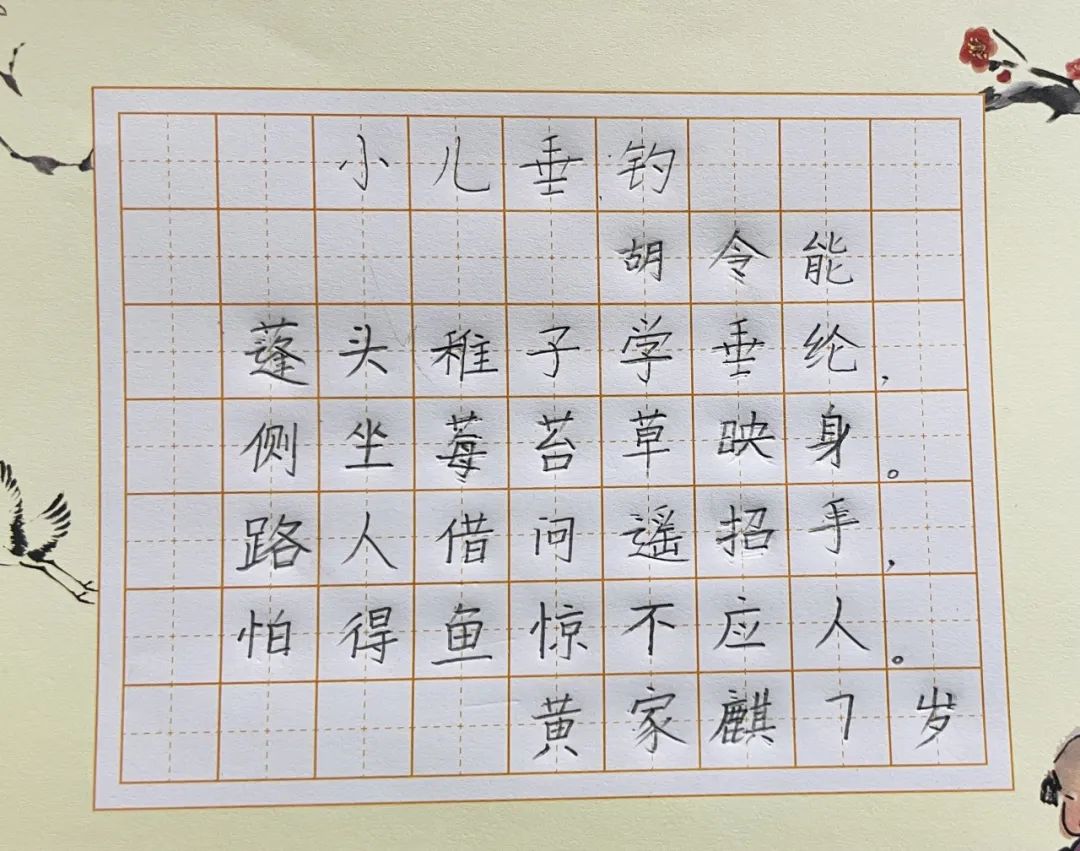 小儿垂钓
胡令能
蓬头稚子学垂纶,
侧坐莓苔草映身。
路人借问遥招手,
怕得鱼惊不应人。
黄家麒7岁